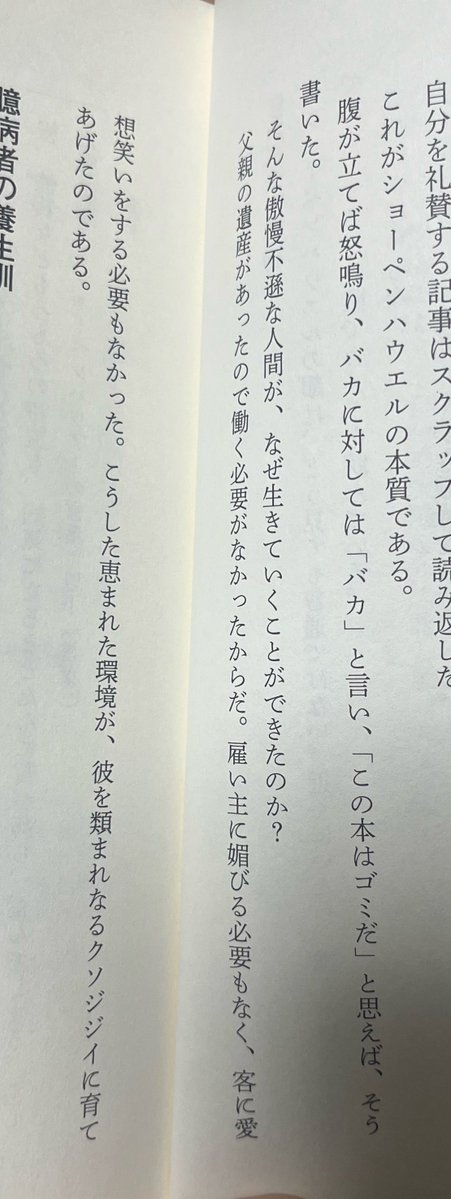 自分を礼賛する記事はスクラップして読み返した
これがショーペンハウエルの本質である。
腹が立てば怒鳴り、バカに対しては「バカ」と言い、「この本はゴミだ」と思えば、そう
書いた。
そんな傲慢不遜な人間が、なぜ生きていくことができたのか？
父親の遺産があったので働く必要がなかったからだ。雇い主に媚びる必要もなく、客に愛
想笑いをする必要もなかった。こうした恵まれた環境が、彼を類まれなるクソジジイに育て
あげたのである。
臆病者の養生訓